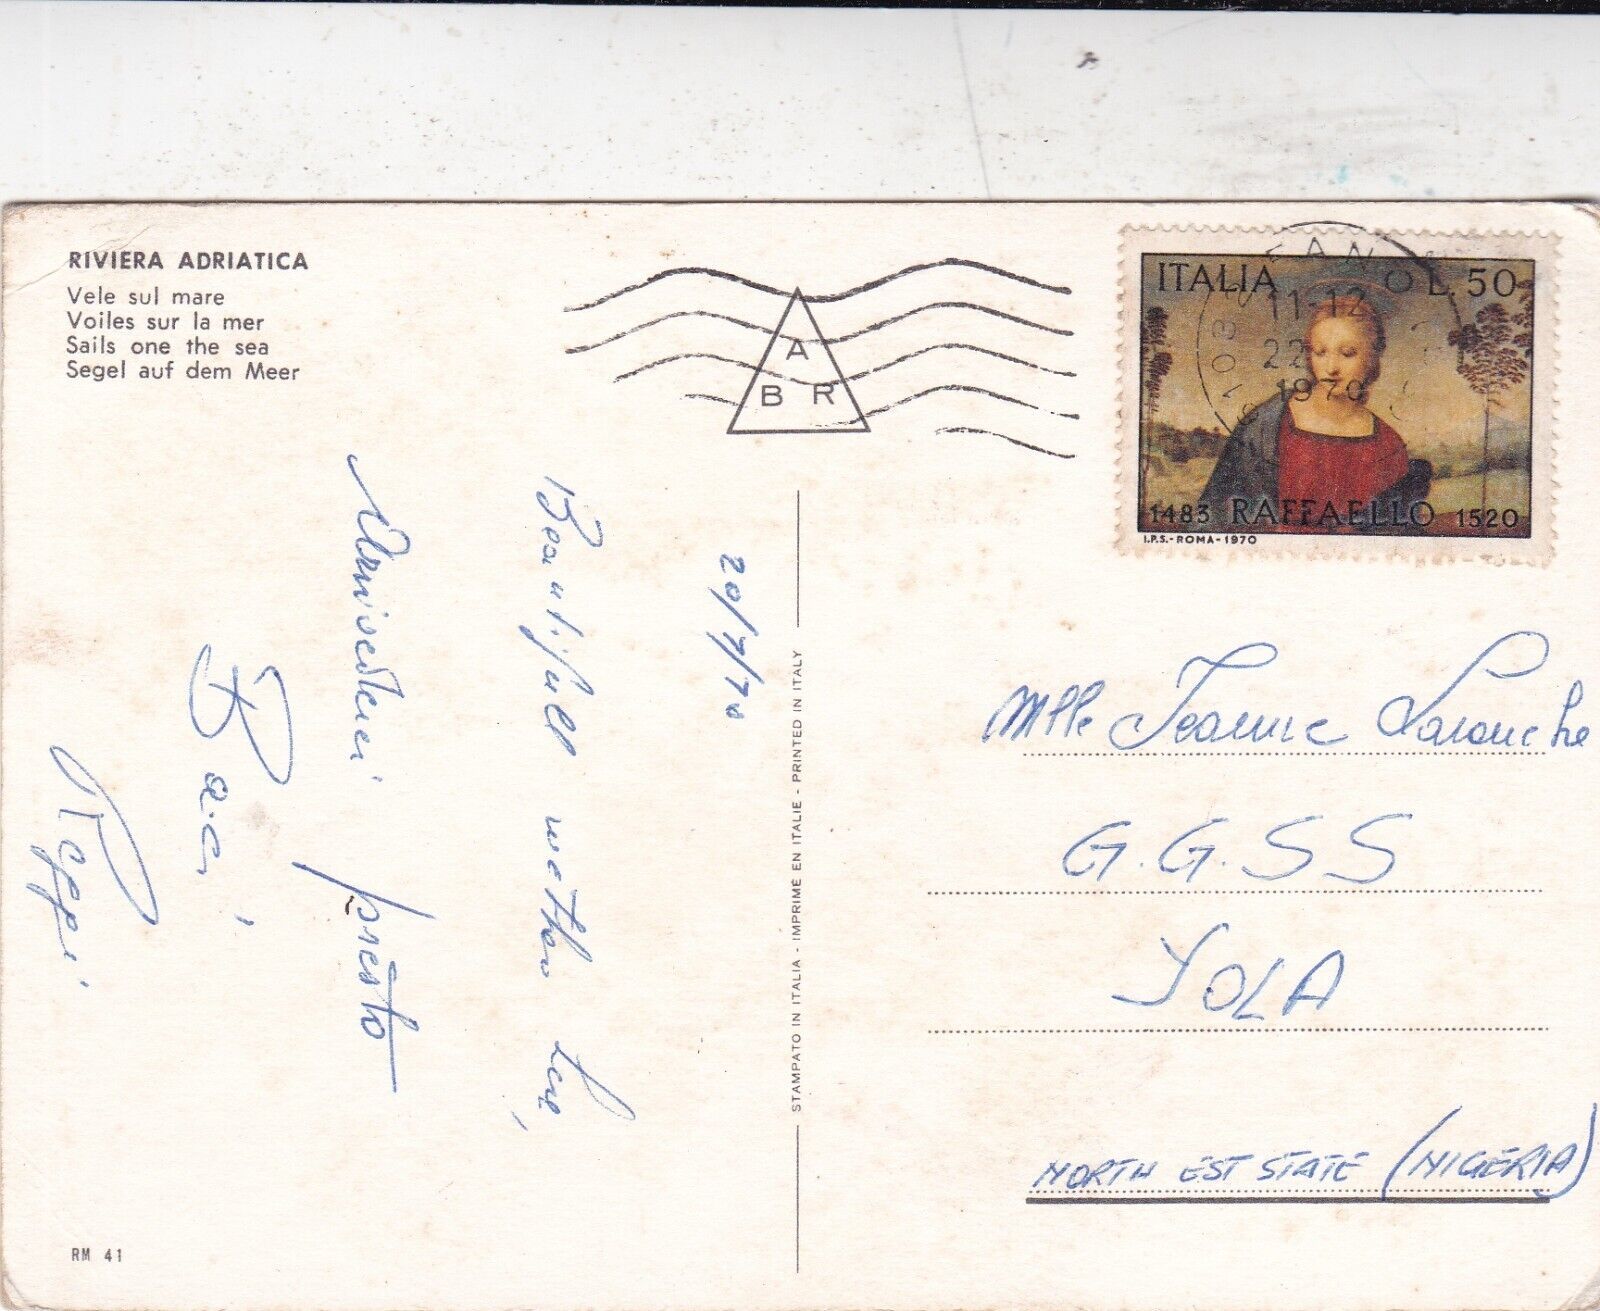 RIVIERA ADRIATICA
Vele sul mare
Voiles sur la mer
Sails one the sea
Segel auf dem Meer
A
B R
61032 FANO
11-12
22
1970
ITALIA L. 50
1483 RAFFAELLO 1520
I.P.S.-ROMA-1970
20/7/70
Beautifull wether here,
Arrivederci presto
Baci,
Peppi
STAMPATO IN ITALIA - IMPRIME EN ITALIE - PRINTED IN ITALY
Mlle Jeanne Larouche
G.G.S.S
YOLA
NORTH EST STATE (NIGERIA)
RM 41